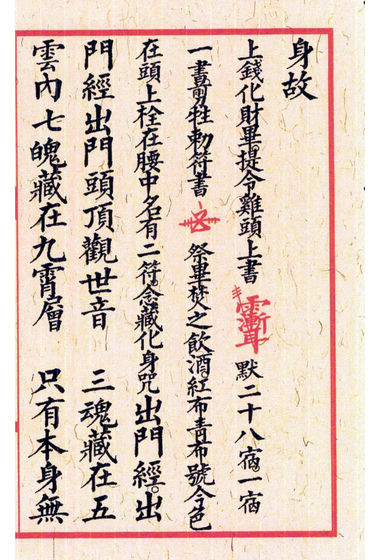 身故
上錢化財畢提令雞頭上書 默二十八宿一宿
一書剪牲勅符書 祭畢焚之飲酒紅布青布號令色
在頭上栓在腰中名有二符念藏化身咒出門經出
門經出門頭頂觀世音 三魂藏在五
雲內七魄藏在九霄層 只有本身無